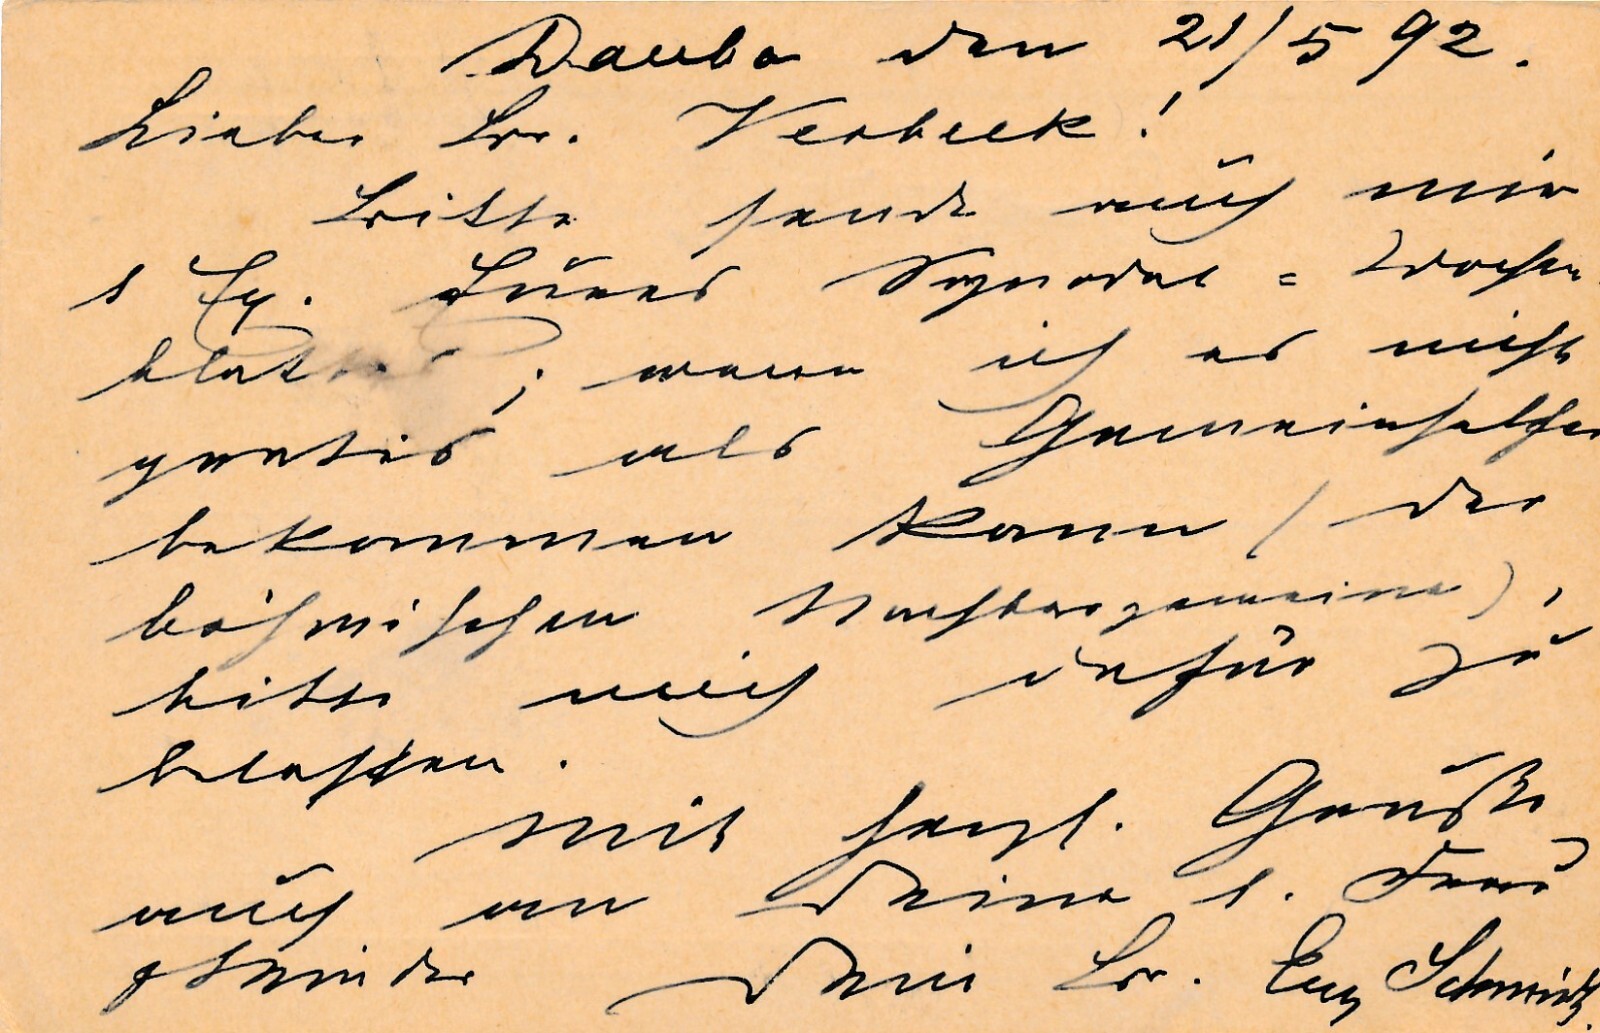 Dauba den 21/5 92.
Lieber Br. Verbeek!
Bitte sende auch mir
1 Ex. Eures Synodal = Wochen
blattes; wenn ich es nicht
gratis als Gemeinhelfer
bekommen kann (der
böhmischen Nachbargemeine),
bitte mich dafür zu
belasten.
Mit herzl. Grüße
auch an Deine l. Frau
& Kinder Dein Br. Eug Schmidt.